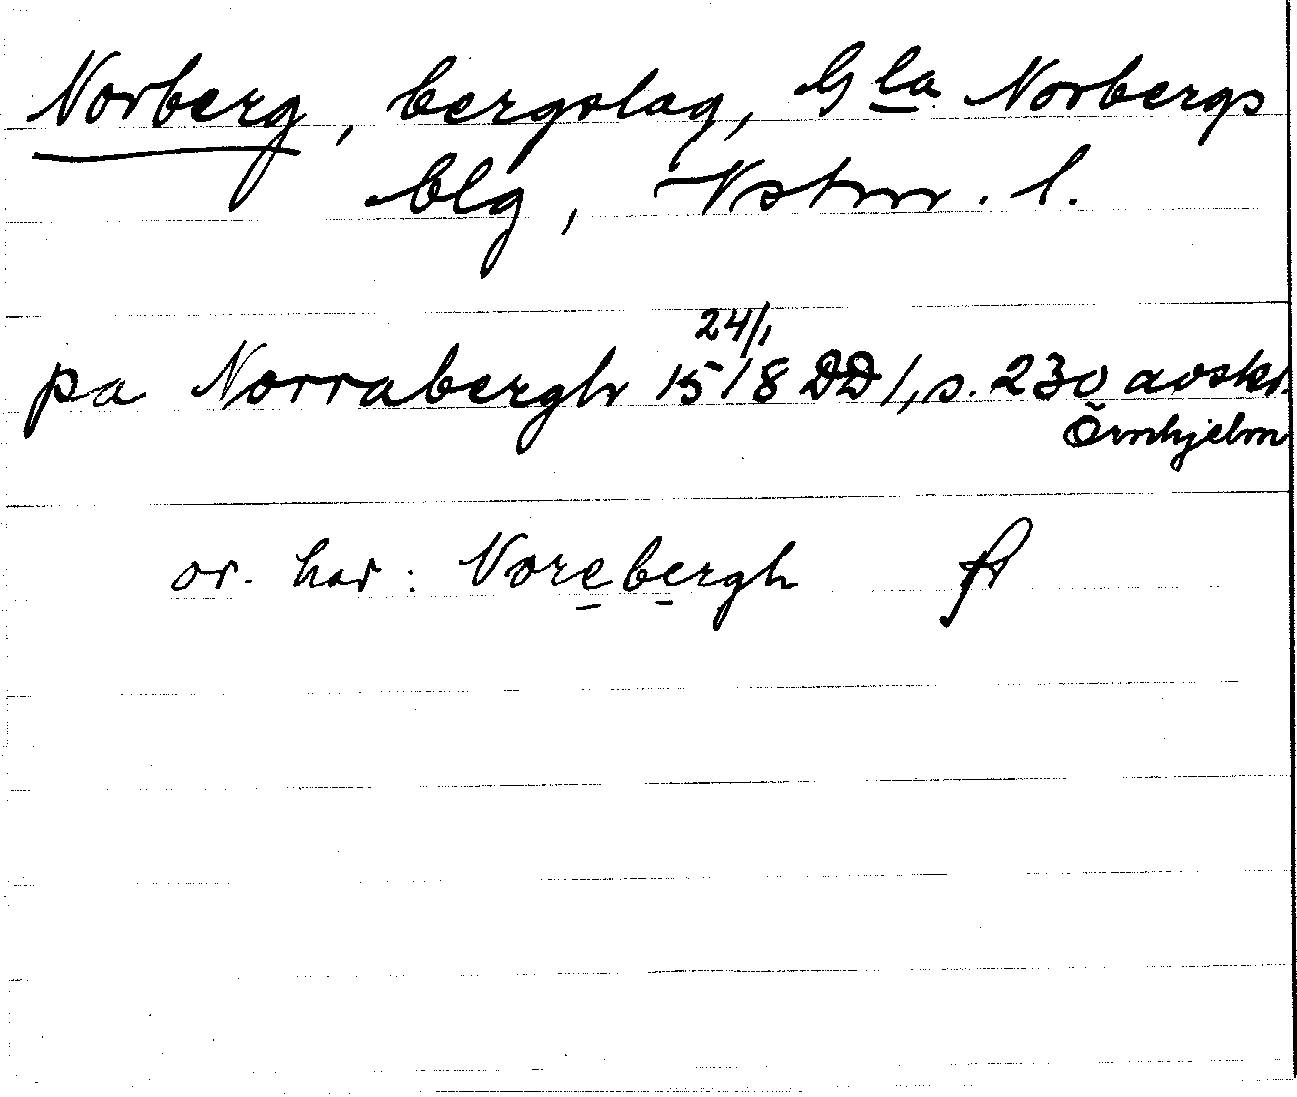 Norberg, bergslag, Gla Norbergs
blg, Vstm. l.
24/1
pa Norrabergh 1518 DD 1, s. 230 avskr.
Örnhjelm
or. har: Norebergh